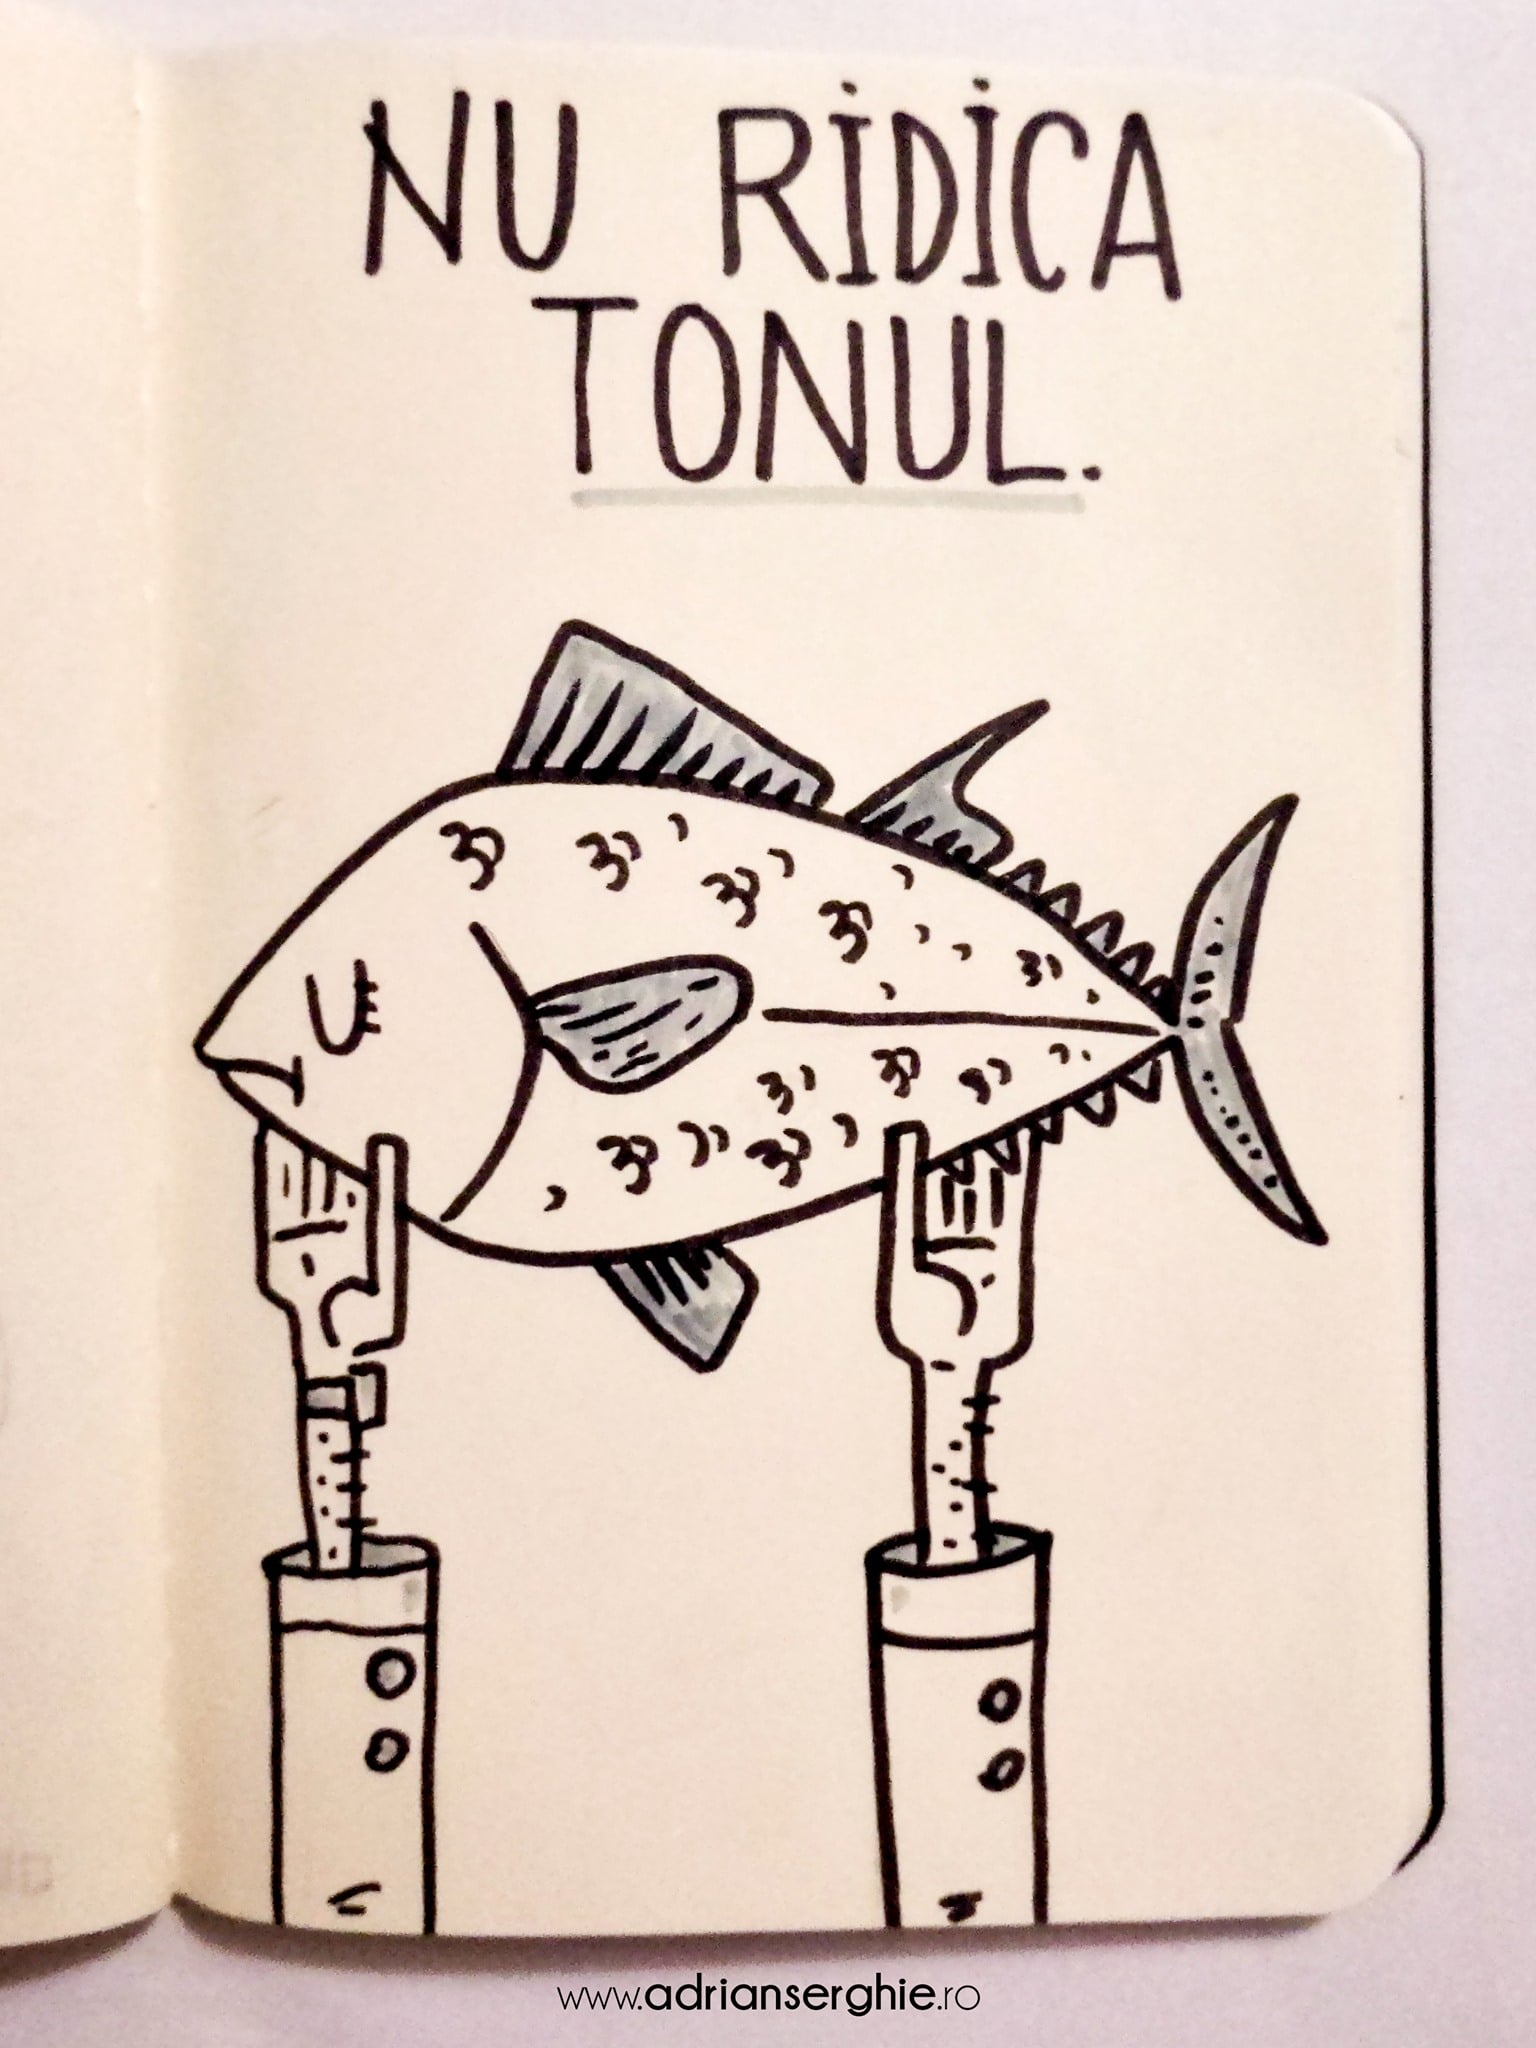 NU RIDICA
TONUL.
www.adrianserghie.ro